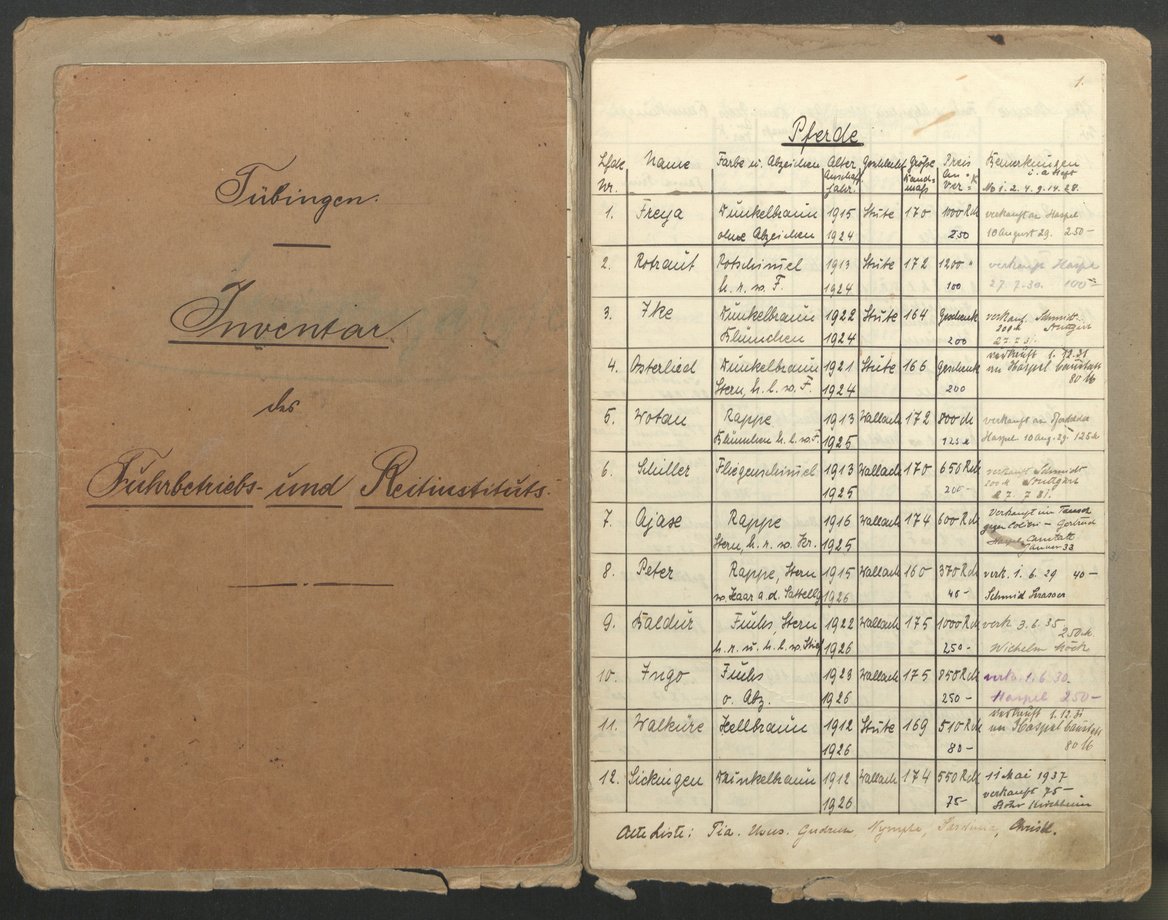 Tübingen.
Inventar
des
Fuhrbetriebs- und Reitinstituts.
1.
Pferde
Lfde Nr. Name Farbe u. Abzeichen Alter Anschaff. Jahr. Geschlecht Größe Bandmaß Preis An- Ver- K Bemerkungen
No 1. 2. 4. 9. 14. 28.
1. Freya Dunkelbraun 1915 Stute 170 1000 Rch verkauft an Haspel
ohne Abzeichen 1924 250 10 August 29. 250-
2. Rotraut Rotschimmel 1913 Stute 172 1200 " verkauft Haspel
h. r. w. F. 1924 100 27. 7. 30. 100-
3. Ike Dunkelbraun 1922 Stute 164 Geschenk verkauf. Schmidt
Blümchen 1924 200 200 M Stuttgart
27. 7. 31.
4. Osterlied Dunkelbraun 1921 Stute 166 Geschenk verkauft 1. 12. 31
Stern, h. l. w. F. 1924 200 an Haspel Canstatt
80 M
5. Wotan Rappe 1913 Wallach 172 800 M verkauft an
Blümchen h. l. w. F. 1925 125 M Haspel 10 Aug. 29. 125 M
6. Schiller Fliegenschimmel 1913 Wallach 170 650 Rch verkauft Schmidt
1925 200- 200 M Stuttgart
27. 7. 31.
7. Ajase Rappe 1916 Wallach 174 600 Rch Verkauft im Tausch
Stern, h. r. w. Kr. 1925 gegen - Gertrud
Haspel Canstatt
Jänner 33
8. Peter Rappe, Stern 1915 Wallach 160 370 Rch verk. 1. 6. 29 40-
w. Haar a. d. Sattellg 1926 40- Schmid
9. Baldur Fuchs, Stern 1922 Wallach 175 1000 Rch verk 3. 6. 35
h. r. u. h. l. w. Stief 1926 250- 250 M
Wilhelm Köck
10. Ingo Fuchs 1923 Wallach 175 850 Rch verk. 1. 6. 30.
o. Abz. 1926 250- Haspel 250-
11. Walküre Hellbraun 1912 Stute 169 510 Rch verkauft 1. 12. 31
1926 80- an Haspel Canstatt
80 M
12. Sickingen Dunkelbraun 1912 Wallach 174 550 Rch 11 Mai 1937
1926 75- verkauft 75-
Kirchheim
Alte Liste: Tia. Gudrun, Nymphe,